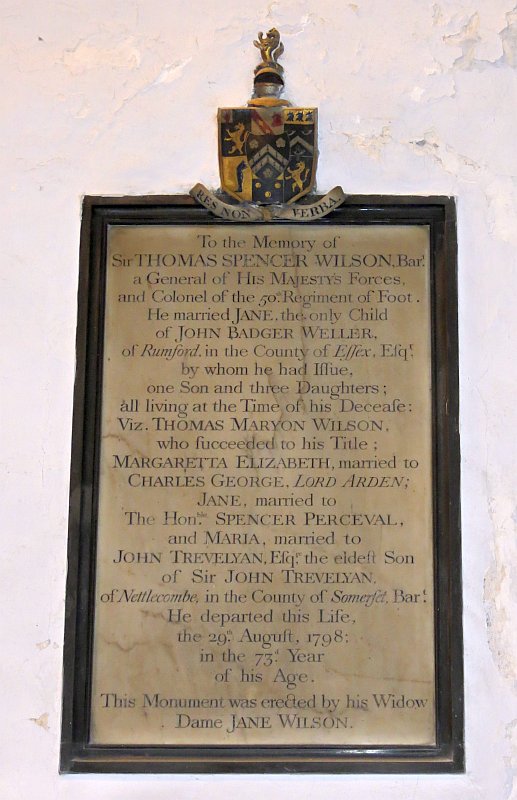 RES NON VERBA.
To the Memory of
Sir THOMAS SPENCER WILSON, Bar.ᵗ
a General of HIS MAJESTY'S Forces,
and Colonel of the 50.ᵗʰ Regiment of Foot.
He married JANE, the only Child
of JOHN BADGER WELLER,
of Rumford, in the County of Eſſex, Eſq.ʳ
by whom he had Iſſue,
one Son and three Daughters;
all living at the Time of his Deceaſe:
Viz. THOMAS MARYON WILSON,
who ſucceeded to his Title;
MARGARETTA ELIZABETH, married to
CHARLES GEORGE, LORD ARDEN;
JANE, married to
The Hon.ᵇˡᵉ SPENCER PERCEVAL,
and MARIA, married to
JOHN TREVELYAN, Eſq.ʳ the eldeſt Son
of Sir JOHN TREVELYAN,
of Nettlecombe, in the County of Somerſet, Bar.ᵗ
He departed this Life,
the 29.ᵗʰ Auguſt, 1798:
in the 73.ᵈ Year
of his Age.
This Monument was erected by his Widow
Dame JANE WILSON.